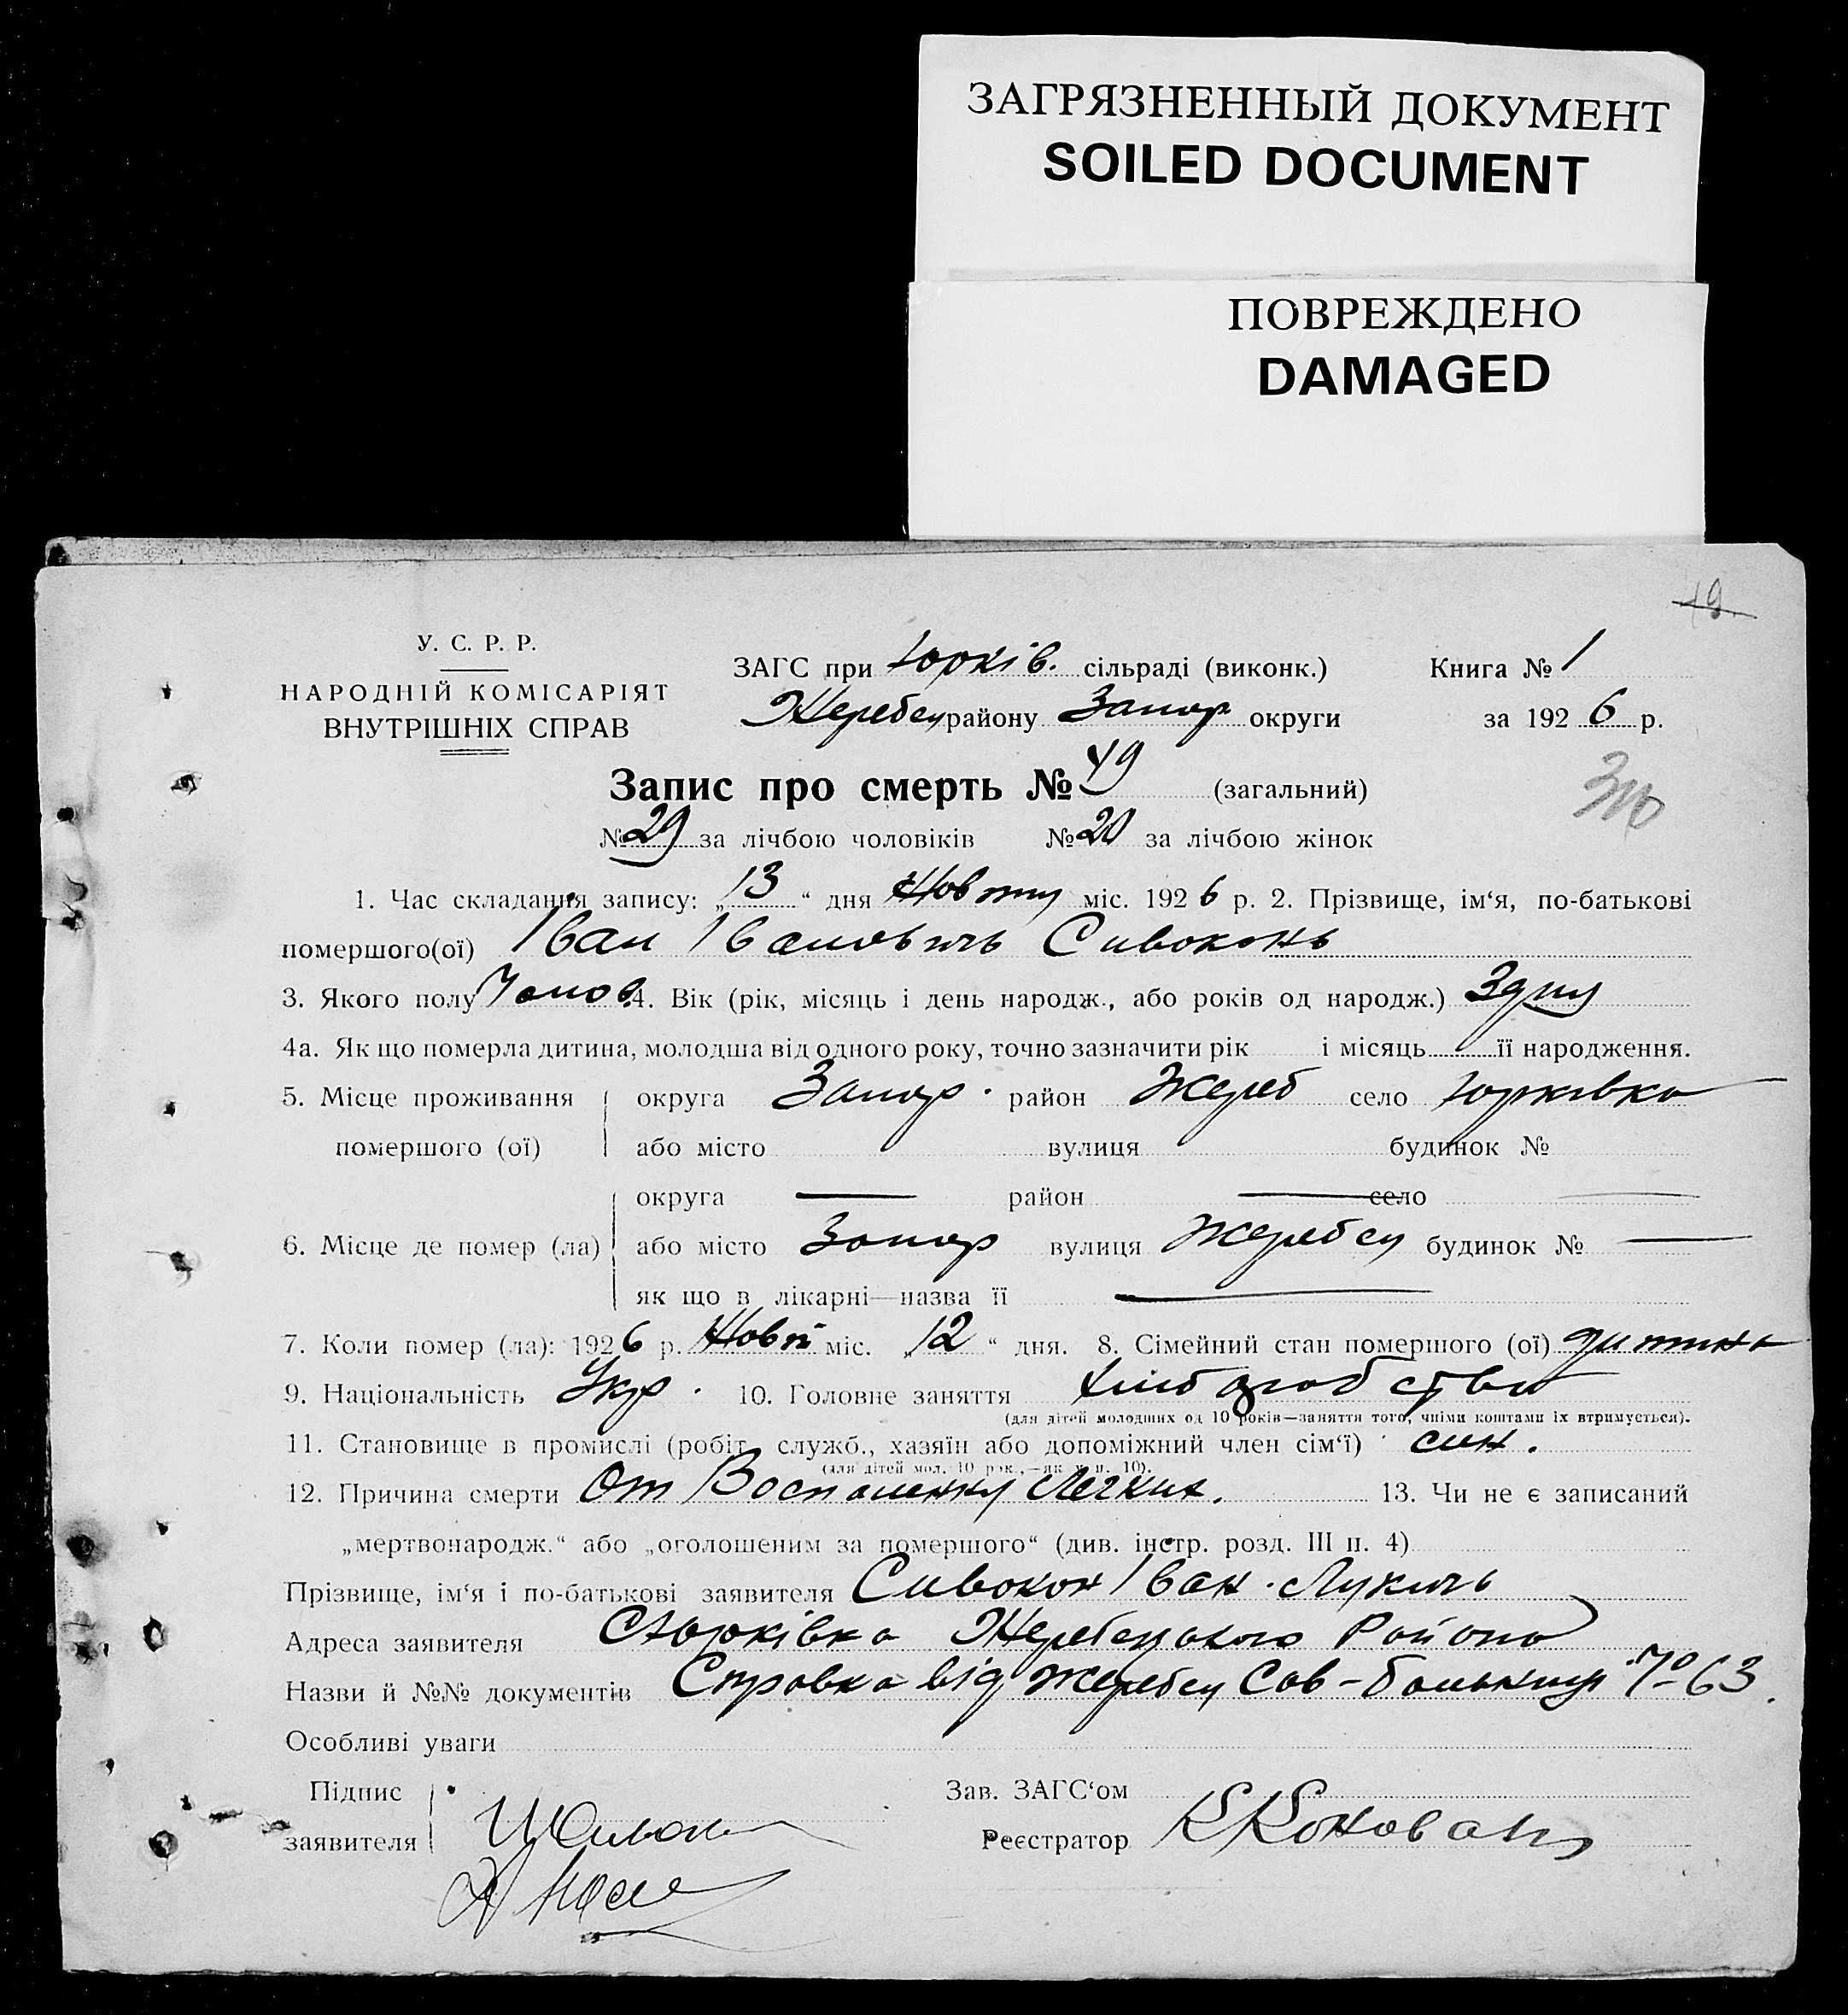 ЗАГРЯЗНЕННЫЙ ДОКУМЕНТ
SOILED DOCUMENT
ПОВРЕЖДЕНО
DAMAGED
19
У. С. Р. Р.
НАРОДНІЙ КОМІСАРІЯТ
ВНУТРІШНІХ СПРАВ
ЗАГС при Юрків. сільраді (виконк.) Книга № 1
Жеребец району Запор округи за 192 6 р.
Запис про смерть № 49 (загальний)
№ 29 за лічбою чоловіків № 20 за лічбою жінок
1. Час складання запису: „ 13 “ дня міс. 192 6 р. 2. Прізвище, ім‘я, по-батькові
помершого(ої) Іван Івановичь Сивоконь
3. Якого полу Чолов. 4. Вік (рік, місяць і день народж., або років од народж.) 3
4а. Як що померла дитина, молодша від одного року, точно зазначити рік і місяць її народження.
5. Місце проживання округа Запор. район Жереб село Юрківка
помершого (ої) або місто вулиця будинок №
округа — район — село —
6. Місце де помер (ла) або місто Запор вулиця Жеребец будинок № —
як що в лікарні—назва її —
7. Коли помер (ла): 192 6 р. Жовт міс. „ 12 “ дня. 8. Сімейний стан помершого (ої) дитина
9. Національність Укр. 10. Головне заняття хліборобство
(для дітей молодших од 10 років—заняття того, чиїми коштами їх втримується).
11. Становище в промислі (робіт., служб., хазяїн або допоміжний член сім‘ї) син.
(для дітей мол. 10 рок.,—як у п. 10).
12. Причина смерти От Легких. 13. Чи не є записаний
„мертвонародж.“ або „оголошеним за помершого“ (див. інстр. розд. III п. 4)
Прізвище, ім‘я і по-батькові заявителя Сивокон Іван Лукичь
Адреса заявителя С Юрківка Района
Назви й №№ документів Справка від Жеребец Сов- № 63.
Особливі уваги
Підпис
заявителя
Зав. ЗАГС‘ом
Реєстратор